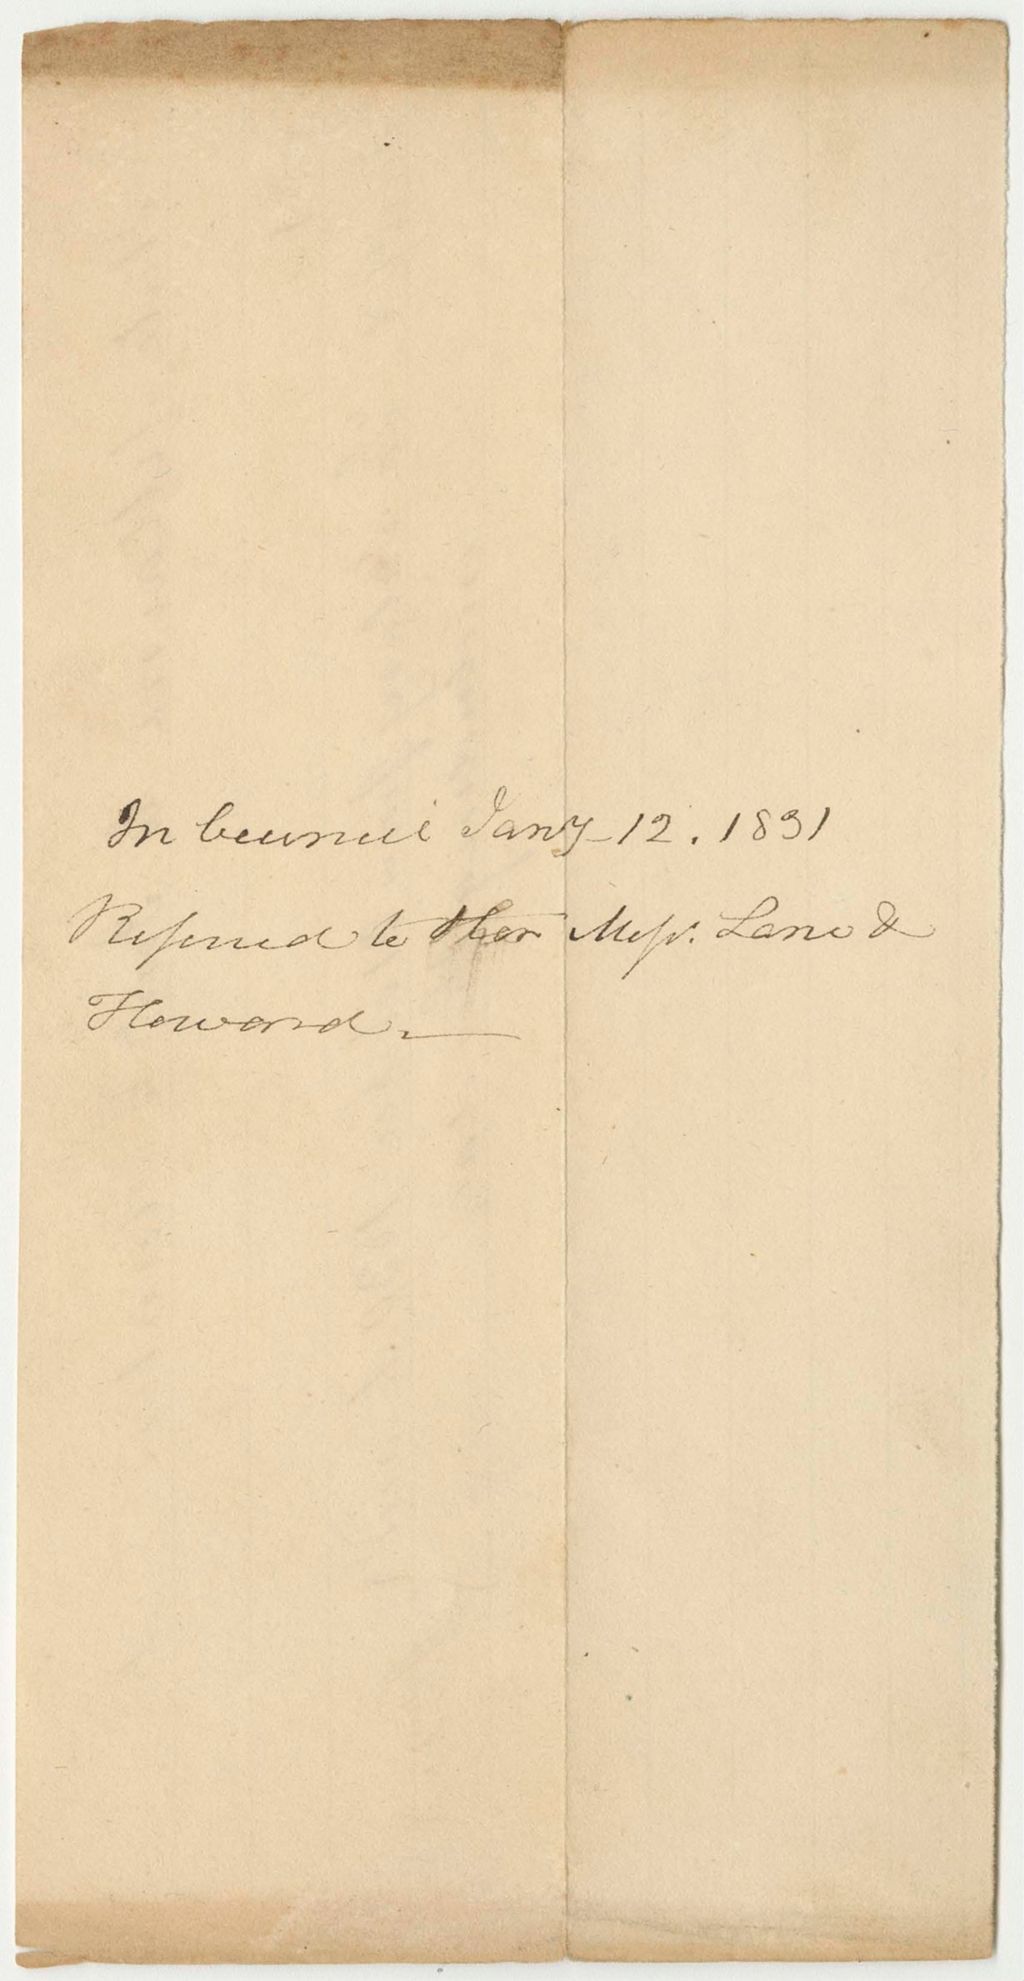 In Council Jany 12. 1831
Referred to Hon Messr. Lane &
Howard.